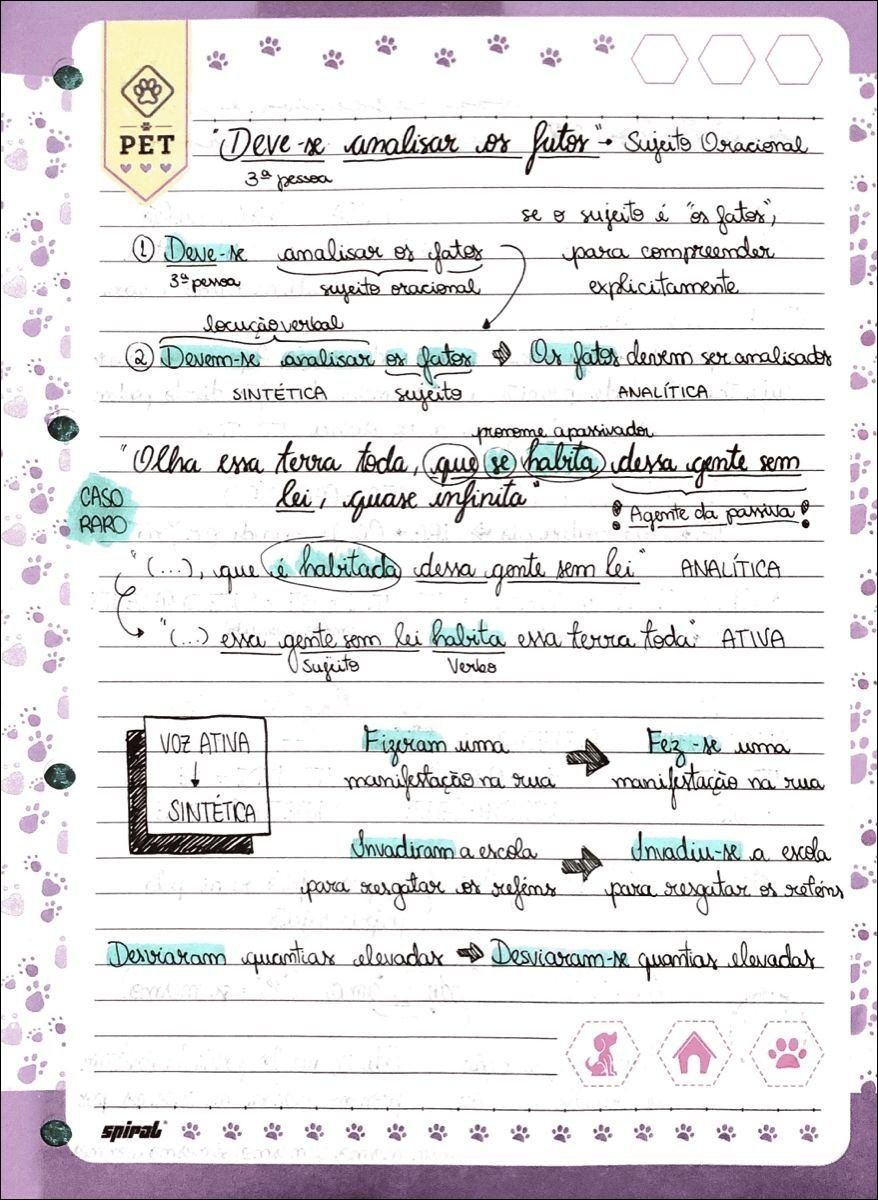 PET
"Deve-se analisar os fatos" → Sujeito Oracional
3ª pessoa
se o sujeito é "os fatos",
① Deve-se analisar os fatos para compreender
3ª pessoa sujeito oracional explicitamente
locução verbal
② Devem-se analisar os fatos ⇒ Os fatos devem ser analisados
SINTÉTICA sujeito ANALÍTICA
pronome apassivador
"Olha essa terra toda, que se habita dessa gente sem
CASO
RARO
lei, quase infinita"
Agente da passiva
"(...), que é habitada dessa gente sem lei" ANALÍTICA
"(...) essa gente sem lei habita essa terra toda" ATIVA
Sujeito Verbo
VOZ ATIVA
↓
SINTÉTICA
Fizeram uma ➡ Fez-se uma
manifestação na rua manifestação na rua
Invadiram a escola ➡ Invadiu-se a escola
para resgatar os reféns para resgatar os reféns
Desviaram quantias elevadas ⇒ Desviaram-se quantias elevadas
spiral